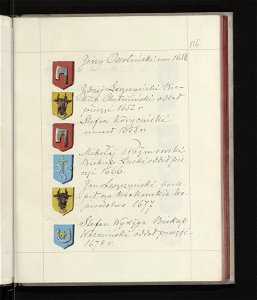 116.
Jérzy Ossoliński um 1650
Jędrzej Leszczyński Bis-
kup Chełmiński oddał
pieczęć 1652 r
Stefan Koryciński
umarł 1658 r.
Mikołaj Prażmowski
Biskup Łucki oddał pie
częć 1666.
Jan Leszczyński
Krakowskie Wo
jewodztwo 1677
Stefan Wydżga Biskup
Warmiński oddał pieczęć
1678 r